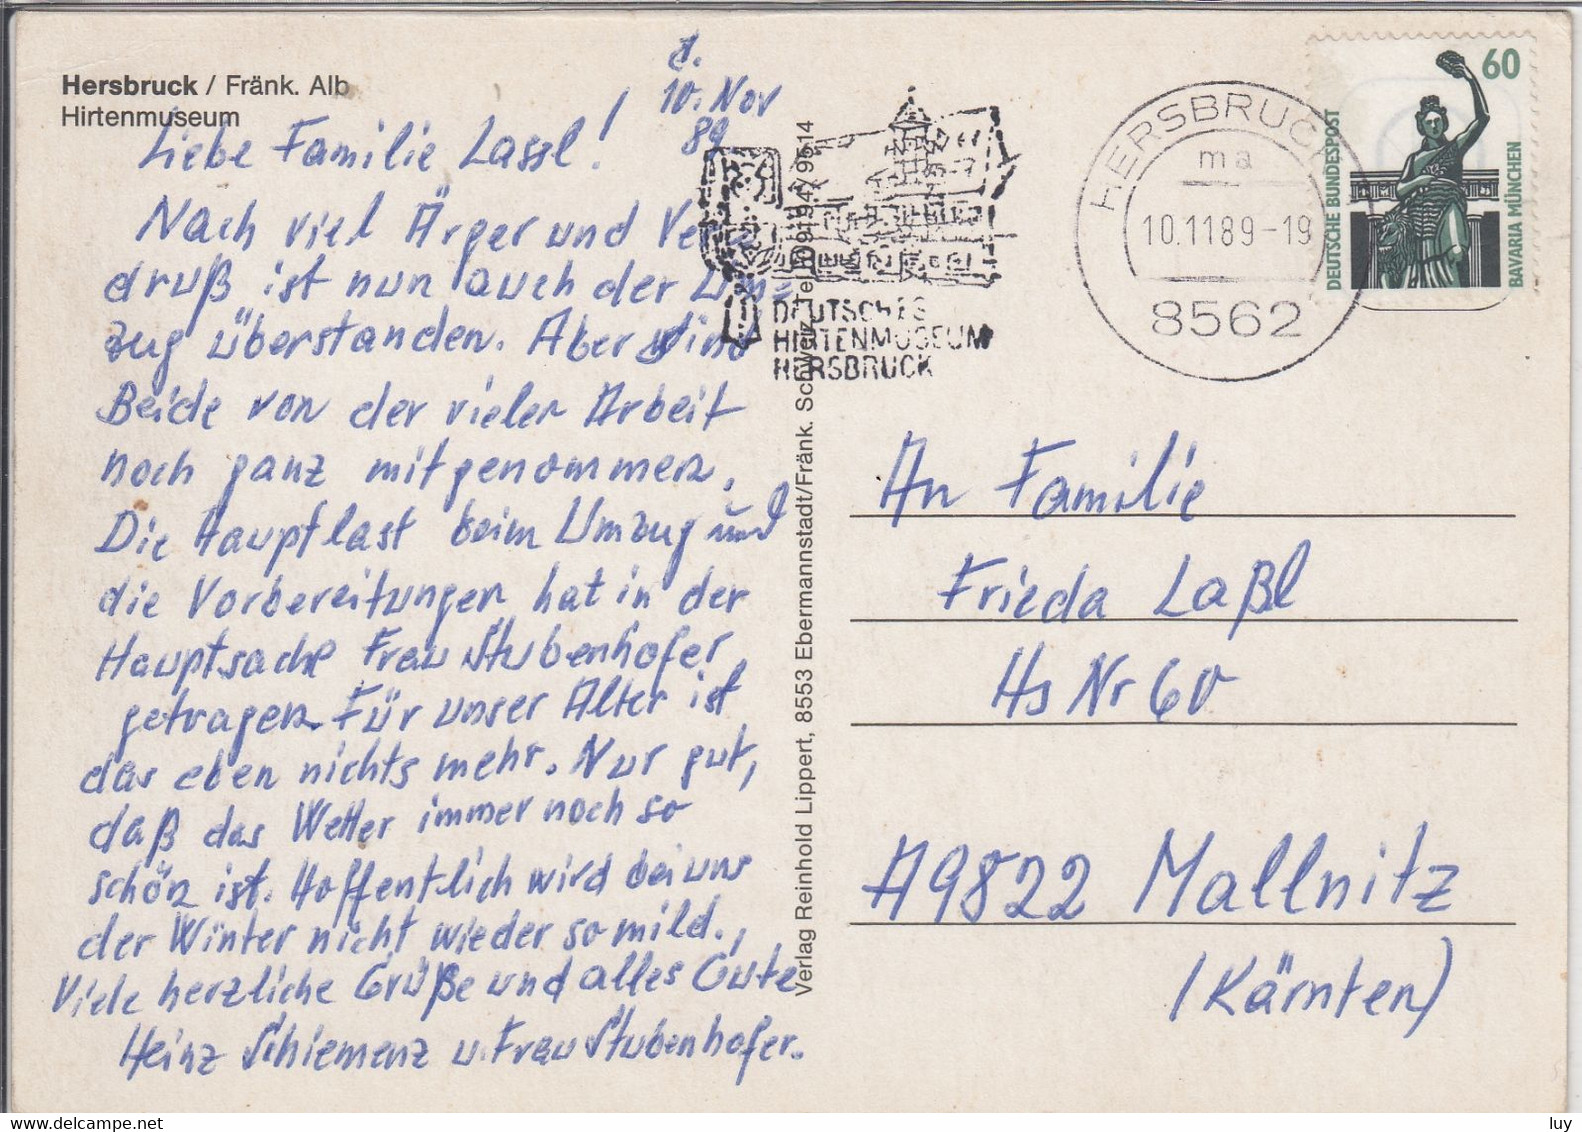 Hersbruck / Fränk. Alb
Hirtenmuseum
d.
10. Nov
89
Liebe Familie Lassl!
Nach viel Ärger und Ver-
druß ist nun auch der Um-
zug überstanden. Aber sind
Beide von der vielen Arbeit
noch ganz mitgenommen.
Die Hauptlast beim Umzug und
die Vorbereitungen hat in der
Hauptsache Frau Stubenhofer
getragen. Für unser Alter ist
das eben nichts mehr. Nur gut,
daß das Wetter immer noch so
schön ist. Hoffentlich wird bei uns
der Winter nicht wieder so mild.,
Viele herzliche Grüße und alles Gute
Heinz Schiemenz u. Frau Stubenhofer.
Verlag Reinhold Lippert, 8553 Ebermannstadt/Fränk. Schweiz, Tel. 09194/9514
DEUTSCHES
HIRTENMUSEUM
HERSBRUCK
HERSBRUCK
ma
10.1189-19
8562
60
DEUTSCHE BUNDESPOST
BAVARIA MÜNCHEN
An Familie
Frieda Laßl
Hs Nr 60
A9822 Mallnitz
(Kärnten)
luy